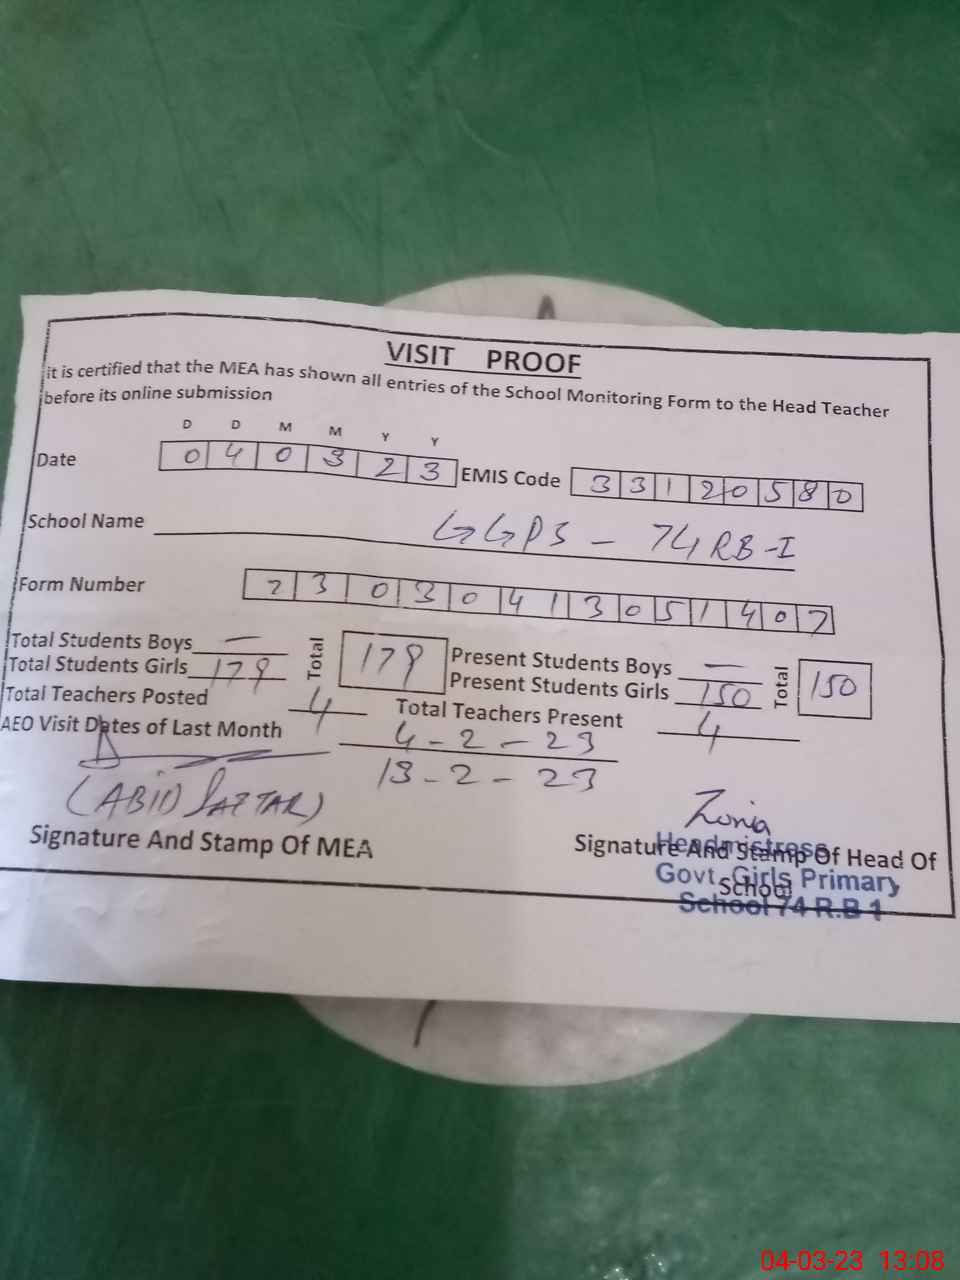 VISIT PROOF
it is certified that the MEA has shown all entries of the School Monitoring Form to the Head Teacher
before its online submission
D D M M Y Y
Date 0 4 0 3 2 3 EMIS Code 3 3 1 2 0 5 8 0
School Name GGPS - 74 RB-I
Form Number 2 3 0 3 0 4 1 3 0 5 1 4 0 7
Total Students Boys — Present Students Boys —
Total Students Girls 179 Total 179 Present Students Girls 150 Total 150
Total Teachers Posted 4 Total Teachers Present 4
AEO Visit Dates of Last Month 4-2-23
13-2-23
(ABID SATTAR)
Zonia
Signature And Stamp Of MEA
Signature And Stamp Of Head Of
School
Headmistress
Govt. Girls Primary
School 74 R.B 1
04-03-23 13:08